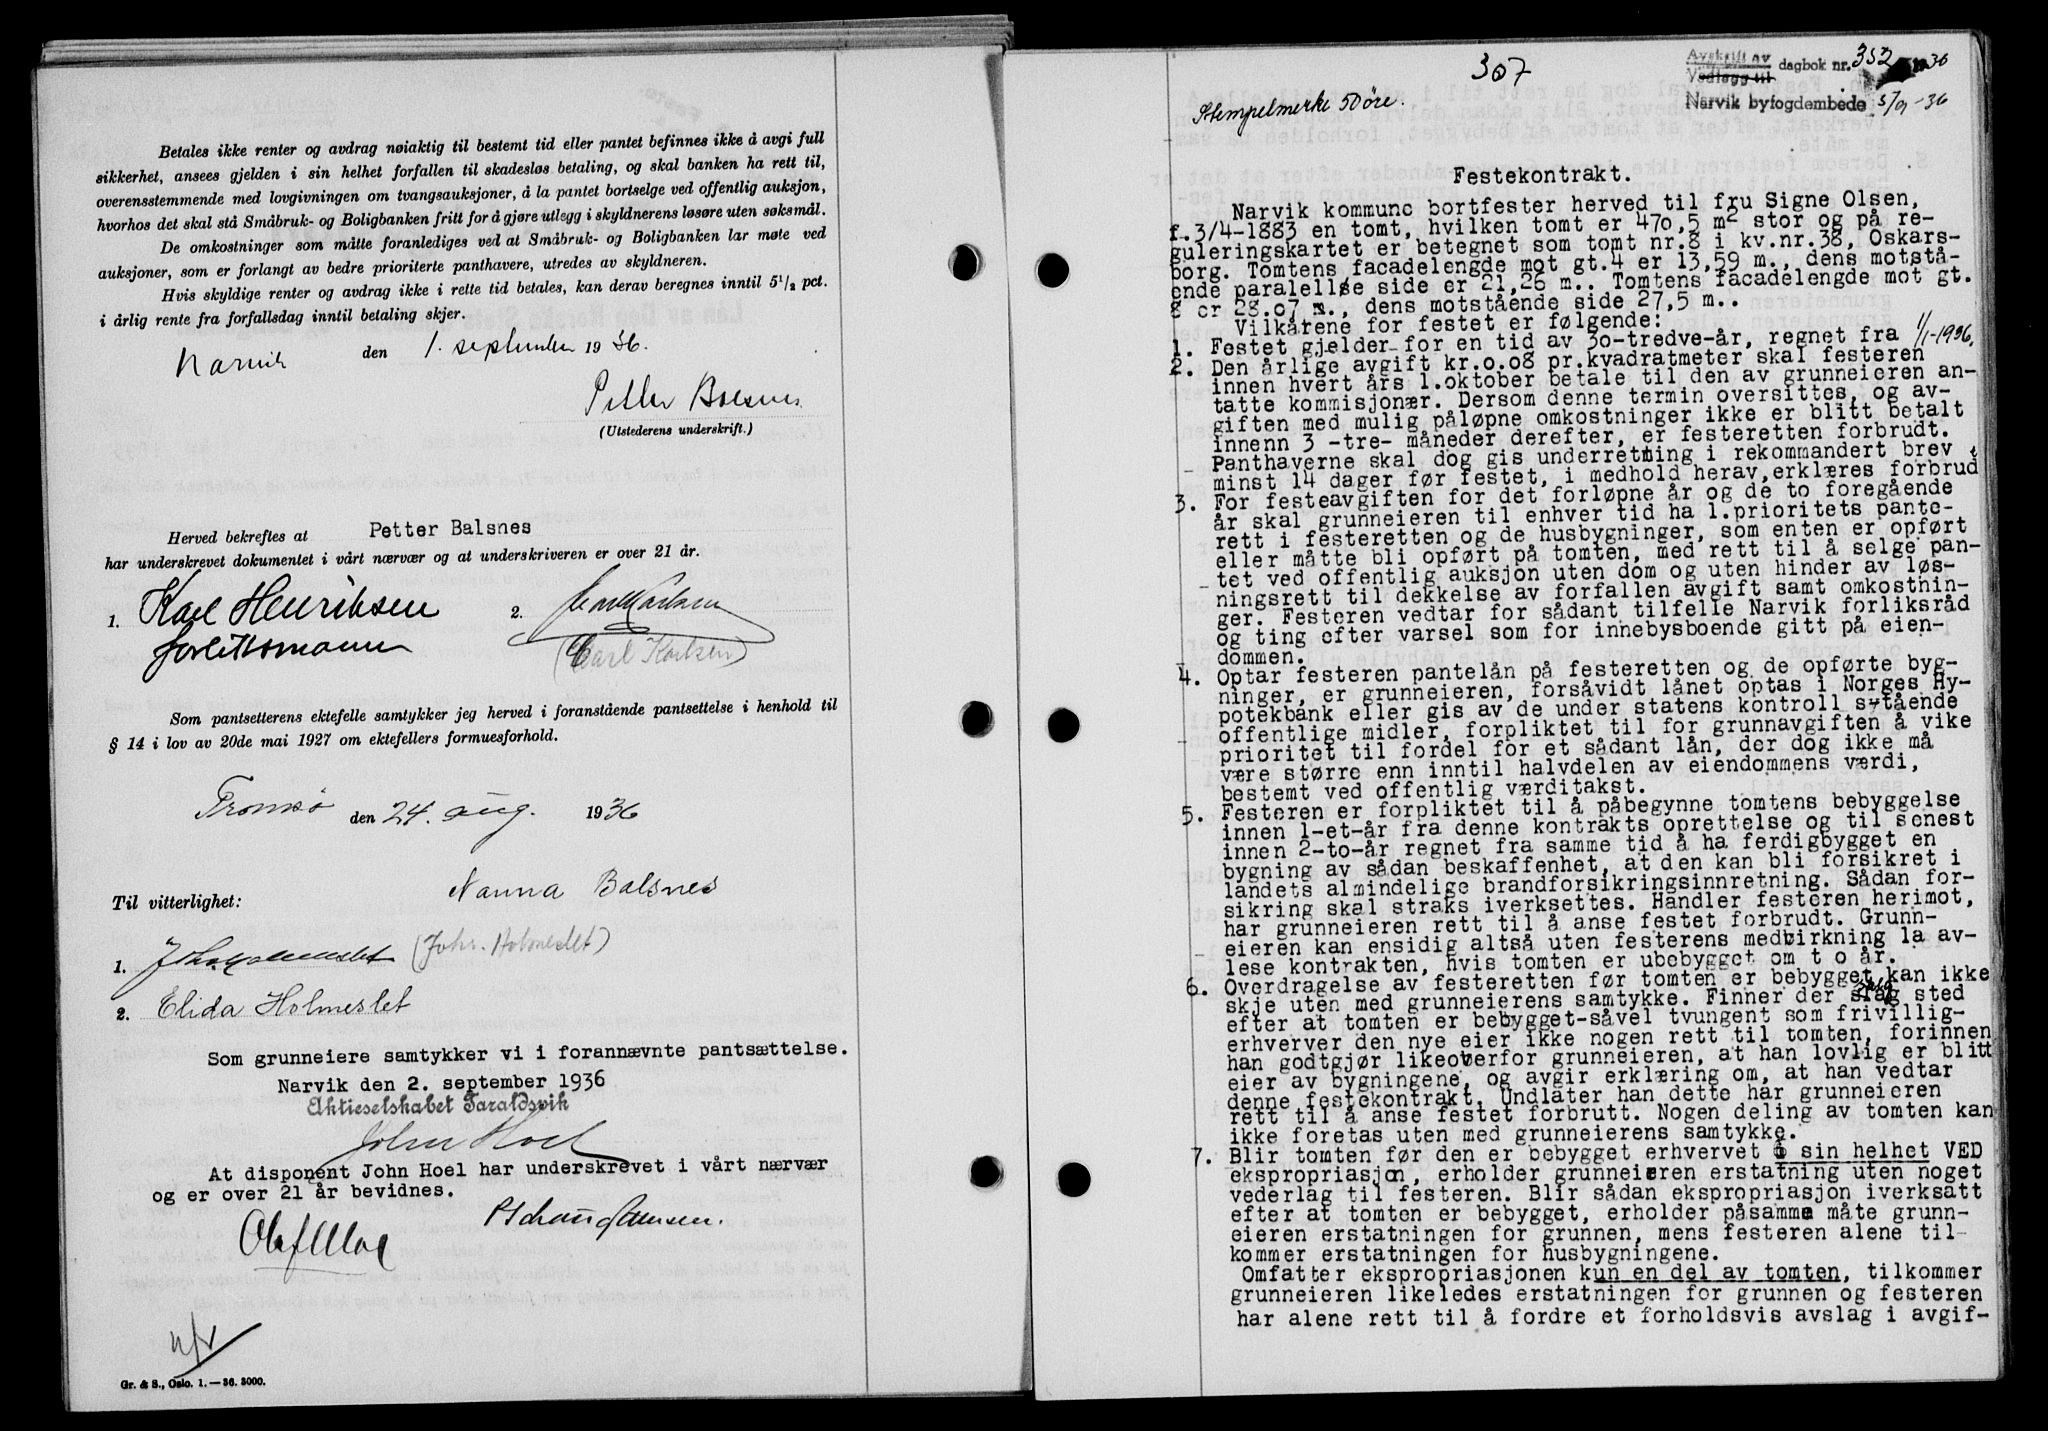 Betales ikke renter og avdrag nøiaktig til bestemt tid eller pantet befinnes ikke å avgi full
sikkerhet, ansees gjelden i sin helhet forfallen til skadesløs betaling, og skal banken ha rett til,
overensstemmende med lovgivningen om tvangsauksjoner, å la pantet bortselge ved offentlig auksjon,
hvorhos det skal stå Småbruk- og Boligbanken fritt for å gjøre utlegg i skyldnerens løsøre uten søksmål.
De omkostninger som måtte foranlediges ved at Småbruk- og Boligbanken lar møte ved
auksjoner, som er forlangt av bedre prioriterte panthavere, utredes av skyldneren.
Hvis skyldige renter og avdrag ikke i rette tid betales, kan derav beregnes inntil 5½ pct.
i årlig rente fra forfallsdag inntil betaling skjer.
Narvik den 1. september 1936.
Petter Balsnes
(Utstederens underskrift.)
Herved bekreftes at Petter Balsnes
har underskrevet dokumentet i vårt nærvær og at underskriveren er over 21 år.
1. Karl Henriksen 2. Carl Karlsen
forliksmann (Carl Karlsen)
Som pantsetterens ektefelle samtykker jeg herved i foranstående pantsettelse i henhold til
§ 14 i lov av 20de mai 1927 om ektefellers formuesforhold.
Tromsø den 24. aug. 1936
Nanna Balsnes
Til vitterlighet:
1. Joh. Holmeslet (Johs. Holmeslet)
2. Elida Holmeslet
Som grunneiere samtykker vi i forannævnte pantsættelse.
Narvik den 2. september 1936
Aktieselskabet Taraldsvik
John Hoel
At disponent John Hoel har underskrevet i vårt nærvær
og er over 21 år bevidnes.
Gr. & S., Oslo. 1.—36. 3000.
307
Avskrift av
Vedlegg til dagbok nr. 353 1936
Narvik byfogdembede 5/9-36
Stempelmerke 50 øre.
Festekontrakt.
Narvik kommune bortfester herved til fru Signe Olsen,
f.3/4-1883 en tomt, hvilken tomt er 470,5 m2 stor og på re-
guleringskartet er betegnet som tomt nr.8 i kv.nr.38, Oskars-
borg. Tomtens facadelengde mot gt.4 er 13,59 m., dens motstå-
ende paralelløe side er 21,26 m.. Tomtens facadelengde mot gt.
8 er 28.07 m., dens motstående side 27,5 m..
Vilkårene for festet er følgende:
1. Festet gjelder for en tid av 30-tredve-år, regnet fra 1/1-1936.
2. Den årlige avgift kr.0.08 pr.kvadratmeter skal festeren
innen hvert års 1.oktober betale til den av grunneieren an-
tatte kommisjonær. Dersom denne termin oversittes, og av-
giften med mulig påløpne omkostninger ikke er blitt betalt
innenn 3 -tre- måneder derefter, er festeretten forbrudt.
Panthaverne skal dog gis underretning i rekommandert brev
minst 14 dager før festet, i medhold herav, erklæres forbrud
3. For festeavgiften for det forløpne år og de to foregående
år skal grunneieren til enhver tid ha 1.prioritets pante-
rett i festeretten og de husbygninger, som enten er opført
eller måtte bli opført på tomten, med rett til å selge pan-
tet ved offentlig auksjon uten dom og uten hinder av løs-
ningsrett til dekkelse av forfallen avgift samt omkostnin-
ger. Festeren vedtar for sådant tilfelle Narvik forliksråd
og ting efter varsel som for innebysboende gitt på eien-
dommen.
4. Optar festeren pantelån på festeretten og de opførte byg-
ninger, er grunneieren, forsåvidt lånet optas i Norges Hy-
potekbank eller gis av de under statens kontroll stående
offentlige midler, forpliktet til for grunnavgiften å vike
prioritet til fordel for et sådant lån, der dog ikke må
være større enn inntil halvdelen av eiendommens værdi,
bestemt ved offentlig værditakst.
5. Festeren er forpliktet til å påbegynne tomtens bebyggelse
innen 1-et-år fra denne kontrakts oprettelse og til senest
innen 2-to-år regnet fra samme tid å ha ferdigbygget en
bygning av sådan beskaffenhet, at den kan bli forsikret i
landets almindelige brandforsikringsinnretning. Sådan for-
sikring skal straks iverksettes. Handler festeren herimot,
har grunneieren rett til å anse festet forbrudt. Grunn-
eieren kan ensidig altså uten festerens medvirkning la av-
lese kontrakten, hvis tomten er ubebygget om t o år.
6. Overdragelse av festeretten før tomten er bebygget kan ikke
skje uten med grunneierens samtykke. Finner der salg sted
efter at tomten er bebygget-såvel tvungent som frivillig-
erhverver den nye eier ikke nogen rett til tomten, forinnen
han godtgjør likeoverfor grunneieren, at han lovlig er blitt
eier av bygningene, og avgir erklæring om, at han vedtar
denne festekontrakt. Undlater han dette har grunneieren
rett til å anse festet forbrutt. Nogen deling av tomten kan
ikke foretas uten med grunneierens samtykke.
7. Blir tomten før den er bebygget erhvervet i sin helhet VED
ekspropriasjon, erholder grunneieren erstatning uten noget
vederlag til festeren. Blir sådan ekspropriasjon iverksatt
efter at tomten er bebygget, erholder påsamme måte grunn-
eieren erstatningen for grunnen, mens festeren alene til-
kommer erstatningen for husbygningene.
Omfatter ekspropriasjonen kun en del av tomten, tilkommer
grunneieren likeledes erstatningen for grunnen og festeren
har alene rett til å fordre et forholdsvis avslag i avgif-